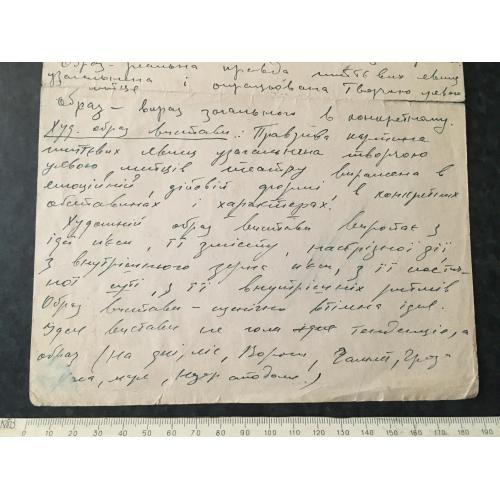 Образ – реальна правда життєвих явищ
узагальнена і опрацьована творчою уявою
митця
Образ – вираз загального в конкретному.
Худ. образ вистави: Правдива картина
життєвих явищ узагальнена творчою
уявою митців театру виражена в
емоційній, дійовій формі, в конкретних
обставинах і характерах.
Художній образ вистави виростає з
ідеї п'єси, її змісту, наскрізної дії,
з внутрішнього зерна п'єси, з її
ної суті, з її внутрішніх ритмів
Образ вистави – сценічно втілена ідея.
Ідея вистави не гола тенденція, а
образ (На дні, ліс, Вороги, Гамлет, Гроза